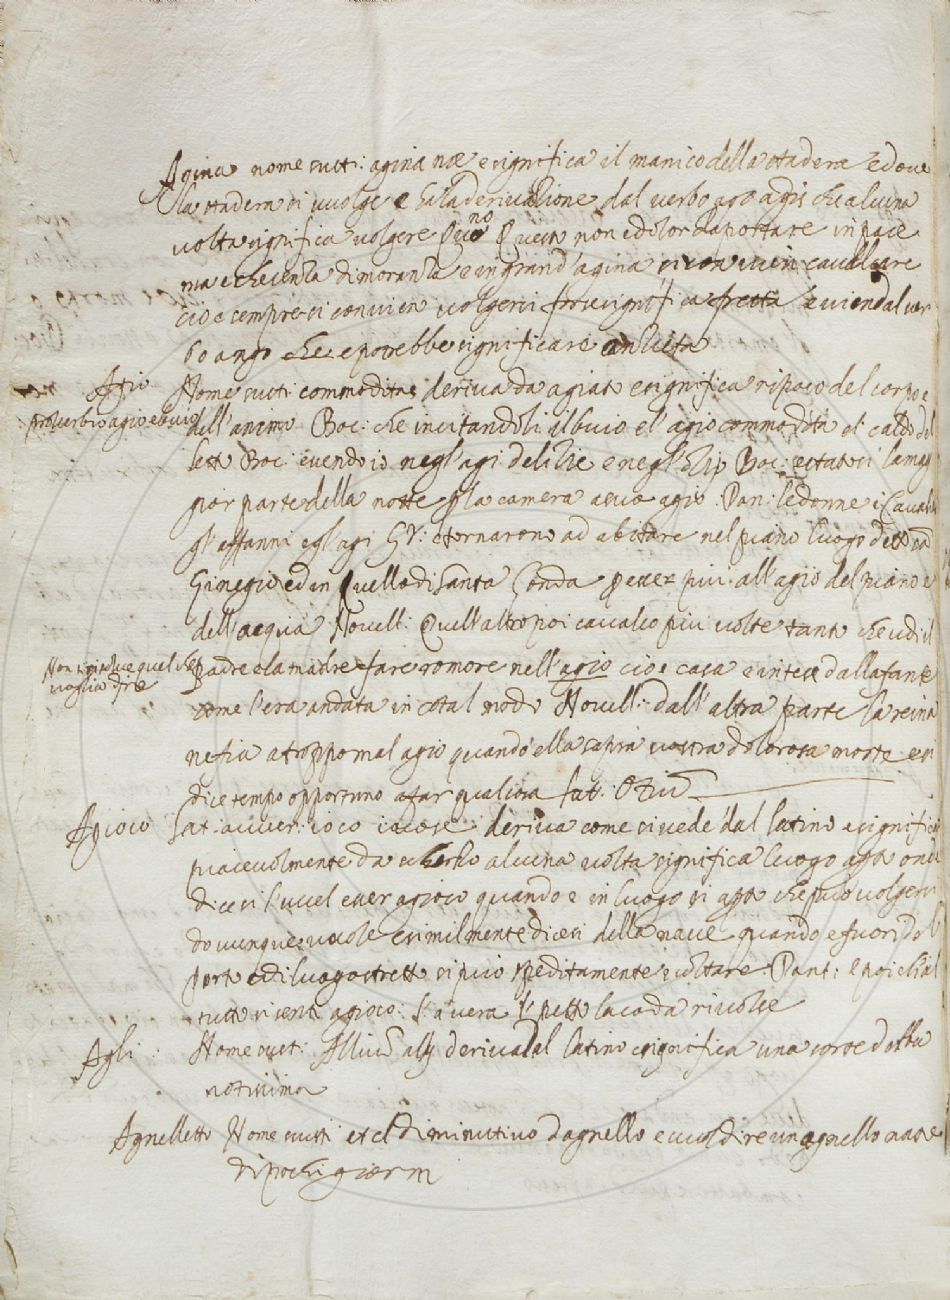 Agina nome sust: agina næ e significa il manico della stadera e dove
la stadera si rivolge e ha la derivatione dal verbo ago agis che alcuna
volta significa volgere Questo non è dolor da portare in pace
ma e senza dimoranza e in grand'agina cavalcare
cioè sempre si convien volgersi forse significa fretta e vien dal ver
bo ango che potrebbe significare anxieta
Agio Nome sust: commodita deriva da agiato e significa riposo del corpo e
proverbio agio e buio dell'animo Boc: che incitandoli il buio e l'agio commodita et caldo del
letto Boc: avendo io negl'agi delitie e negl'otij Boc: e statosi la mag
gior parte della notte p la camera a suo agio Dan: le donne i Cavali
gl'affanni e gl'agi GV: e tornarono ad abitare nel piano luogo detto
Ginegio ed in quello di Santa p esser più all'agio del piano e
dell'acqua Novell: Quell'altro poi cavalco più volte tanto che udi il
Non s'intende quel che Padre e la madre fare romore nell'agio cioè casa e intese dalla fante
voglia dire come l'era andata in cotal modo Novell: dall'altra parte la reina
ne sia a troppo mal agio quando ella saprà vostra dolorosa morte e si
dice tempo opportuno a far qualcosa lat:
Agioco lat: avver: ioco iocose deriva come si vede dal latino e significa
piacevolmente da scherzo alcuna volta significa luogo apto onde
dicesi l'uccel esser agioco quando e in luogo si apto che può volgersi
dovunque vuole e similmente dicesi della nave quando e fuori dol
porto e di luogo stretto si può speditamente voltare Dant: e poi ch'al
tutto si sentì agioco: l'avera il petto la coda rivolse
Agli : Nome sust: allium alij deriva dal latino e significa una sorte d'erba
notissima
Agnelletto Nome susti et e diminutivo d'agnello e vuol dire un agnello nato
di pochi giorni